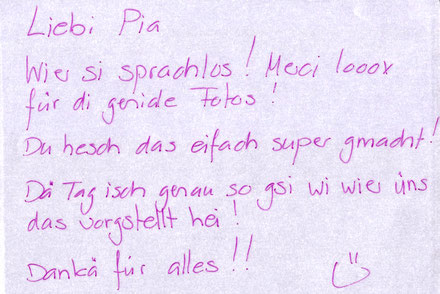 Liebi Pia
Wier si sprachlos! Merci 1000x
für di geniale Fotos!
Du hesch das eifach super gmacht!
Dä Tag isch genau so gsi wi wier üns
das vorgstellt hei!
Dankä für alles!!